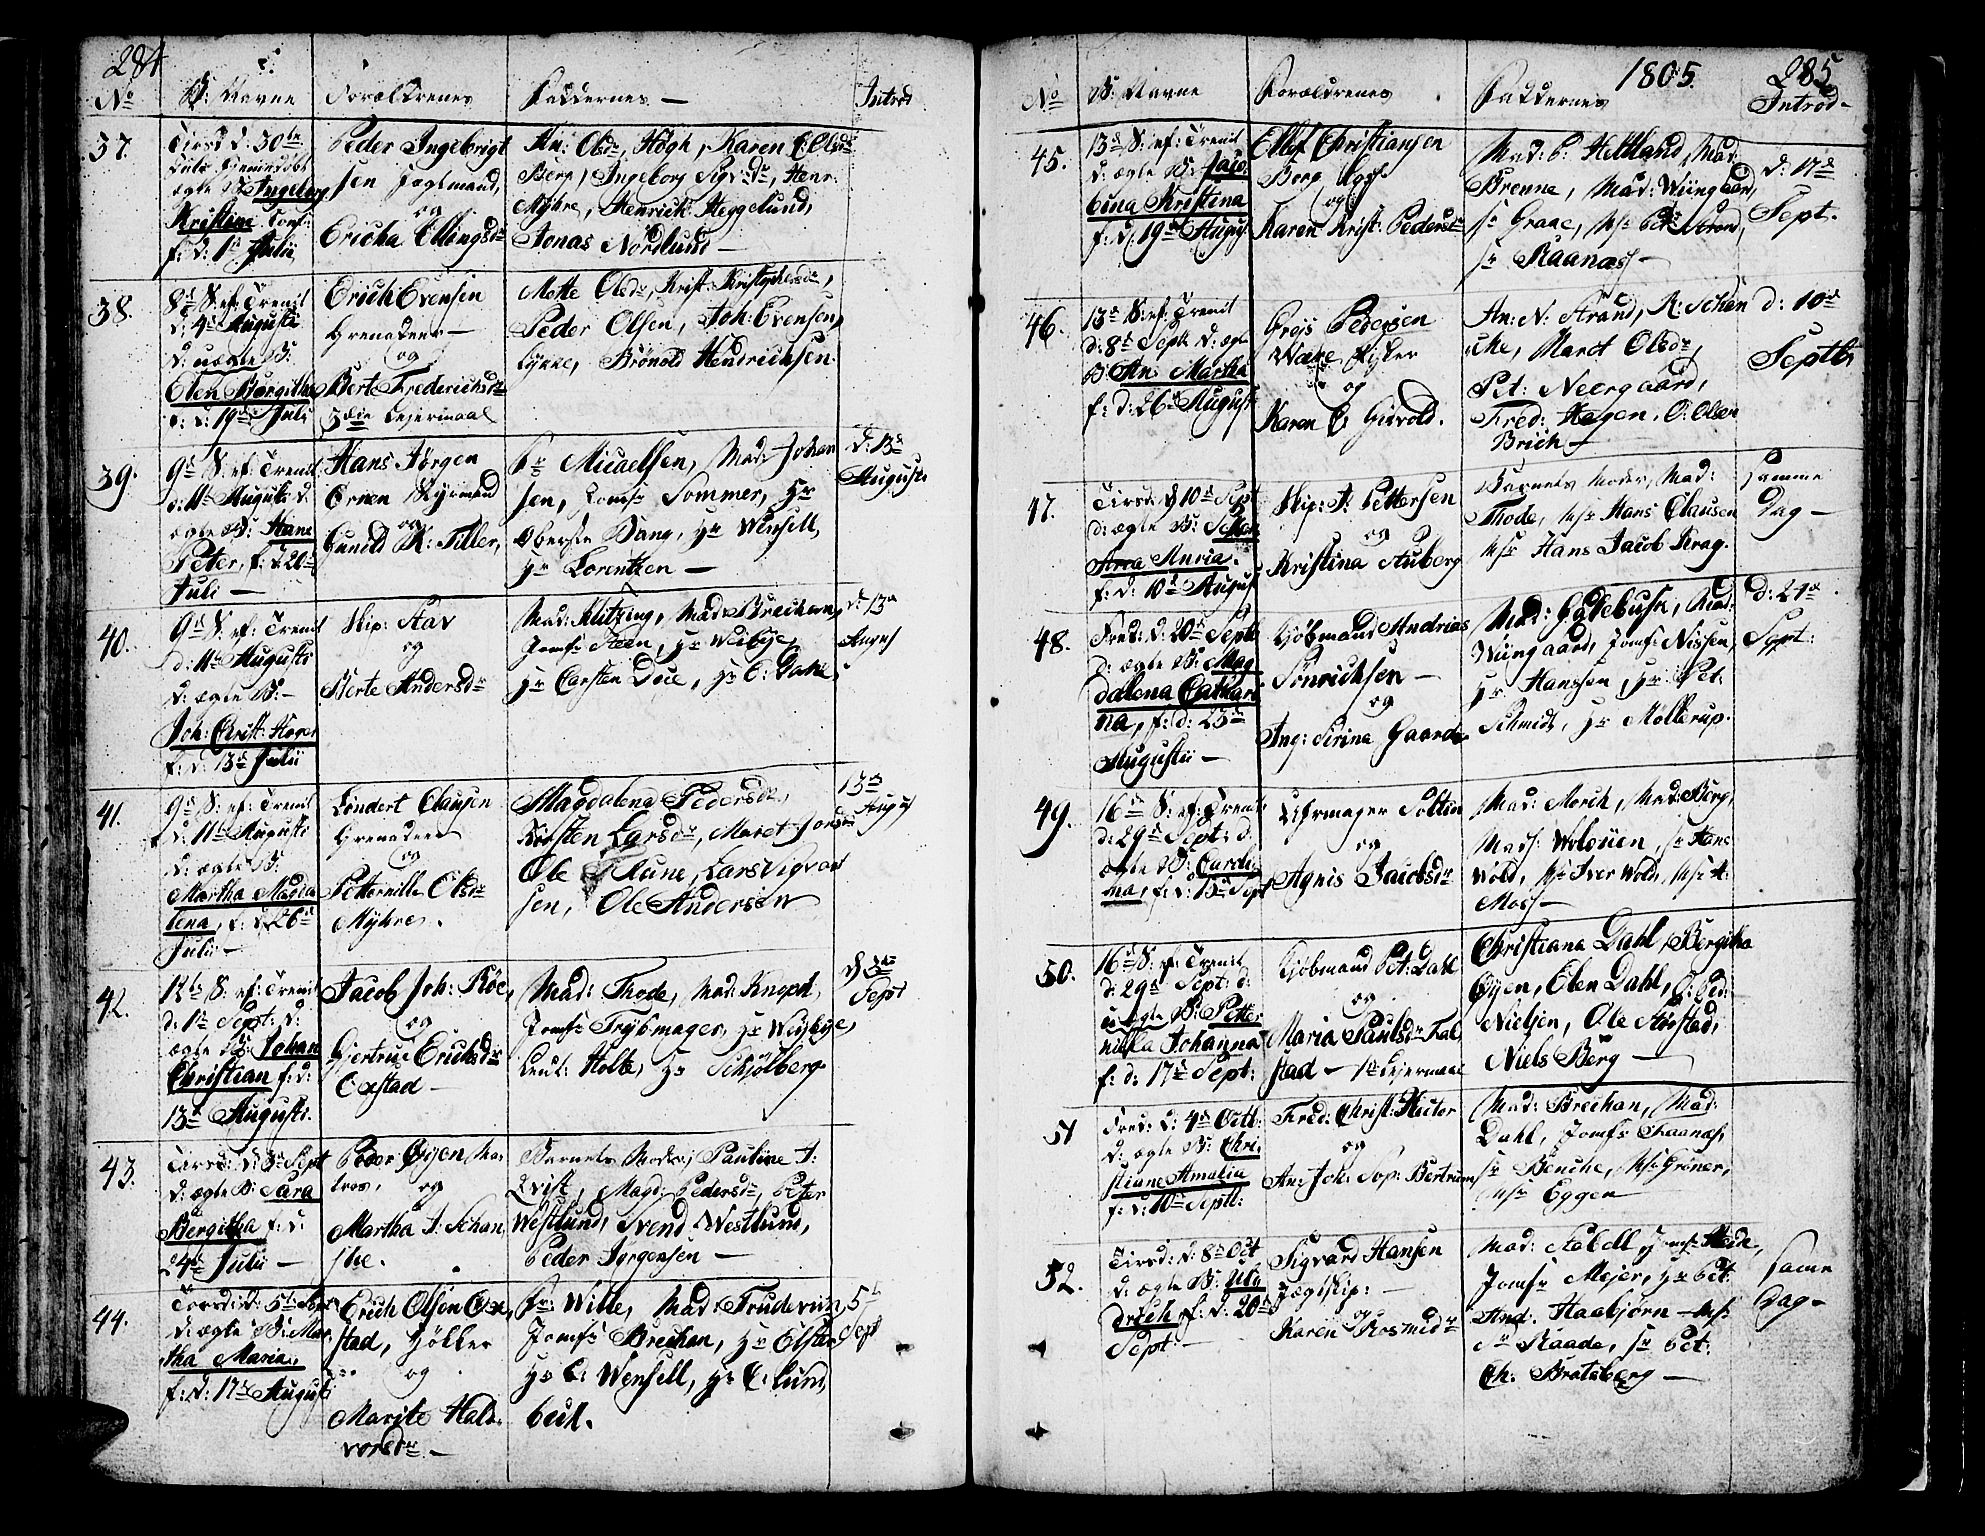 284
No
B: Navne
Forældrenes
Faddernes —
Introd
37.
Tirsd d. 30te
Julii
ægte B: Ingeborg
Kristane
f: d: 1ste Julii
Peder Ingebrigt
sen
og
Ericha Ellingsdr
An: Olsdr, Høgh, Karen E: Olsdr
Berg, Ingeborg Sigv:dr, Henr:
Myhre, Henrick Heggelund,
Jonas Nordlund —
38.
8de S: ef: Trenit
d: 4de Augusti
d: uægte B:
Elen Bergitha
f: d: 19de Juli
Erich Evensen
Grenadeer —
og
Berte Frederichsdr
3die Lejermaal
Mette Olsdr, Krist: Kristophersdr,
Peder Olsen, Joh: Evensen,
Lykke, Brönold Hendrichsen.
39.
9de S: ef: Trenit
d: 11te Augusti d.
ægte B: Hans
Peter, f: d: 20de
Juli —
Hans Jörgen
Ernen Styrmand
og
Gunild K: Tiller,
Fr Micaelsen, Mad: Johan
sen, Jomfr Sommer, Hr
Oberste Bang, Hr Wensell,
Hr Lorentzen —
d: 13de
Augusti
40.
9de S: ef: Trenit
d: 11te Augusti
d: ægte B: —
Joh: Christ: Høyer
f: d: 13de Julii
Skip: Aav
og
Merte Andersdr
Mad: Klitzing, Mad: Brechan,
Jomfr Steen, Hr Weibye,
Hr Carsten Due, Hr C: Dahl,
d: 13de
August
41.
9de S: ef: Trenit
d: 11te Augusti
d: ægte B:
Martha Magda
lena, f: d: 26de
Julii —
Lendert Clausen
Grenadeer
og
Petternille Olsdr
Myhre.
Magdalena Pedersdr,
Kirsten Larsdr, Maret Jonsdr
Ole Rune, Lars Sigvard
sen, Ole Andersen
13de
August
42.
12te S: ef: Trenit
d: 1ste Sept: d:
ægte B: Johan
Christian f: d:
13de Augusti.
Jacob Joh: Röe,
og
Gjertrud Erichsdr
Oxstad —
Mad: Thode, Mad: Knoph,
Jomfr Trybmager, Hr Weybye,
Leut: Holte, Hr Schjölberg
d 3die
Sept
43.
Tirsd: d: 3die Sept
d: ægte B: Sara
Bergitha f: d:
24de Julii —
Peder Öyen, Ma
tros, og
Martha J: Schan
sche.
Barnets Moder, Pauline J:
Qvist, Magd: Pedersdr, Peter
Westlund, Svend Westlund,
Peder Jörgensen —
44.
Torsd: d: 5te Sept
d: ægte B: Mar
tha Maria,
f: d: 17de Augusti
Erich Olsen Ox
stad, Høkker
og
Marite Hald
vorsdr —
Fr: Wille, Mad: Trudevin,
Jomfr Brechan, Hr Elster,
Hr C: Wensell, Hr C: Lund,
beck.
5te
Sept
1805.
285
No
B: Navne
Forældrenes
Faddernes
Introd —
45.
13de S: ef: Trenit
d: ægte B: Jaco
bina Kristina
f: d: 19de August
Ellef Christiansen
Borg
og
Karen Krist: Pedersdr
Mad: C: Hetland, Mad:
Brenne, Mad: Wiingaard,
Sr Graae, Msr Pet: Strand,
Sr Kaanass —
d: 17de
Sept.
46.
13de S: ef: Trenit
d: 8de Sept d: ægte
B: An: Martha
f: d: 26de August
Greis Pedersen
Wake, Fisker
og
Karen E: Girvold.
An: N: Strand, K: Schan
cke, Maret Olsdr,
Pet: Neergaard,
Fred: Hagen, O: Olsen
Brich —
d: 10de
Septb:
47.
Tirsd: d 10de Sept
d: ægte B:
Ana Maria.
f: d: 10de August
Skip: J: Pettersen
og
Kristina Auberg
Barnets Moder, Mad:
Thode, Msr Hans Clausen
Msr Hans Jacob Krag.
Samme
Dag —
48.
Fred: d: 20de Septb
d: ægte B: Mag
dalena Cathari
na, f: d: 23de
Augusti —
Kjöbmand Andreas
Sönnichsen —
og
Ing: Serina Gaarder
Mad: Gadebusch, Mad:
Wiingaard, Jomfr Nissen,
Hr Hanssen, Hr Pet:
Schmidt, Hr Mollerup.
d: 24de
Sept:
49.
16de S: ef: Trenit
d: 29de Sept: d:
ægte B: Caroli
na, f: d: 15de Sept
Uhrmager Soltin
og
Agnis Jacobsdr
Mad: Morch, Mad: Berg,
Mads: Woloüen, Sr Hans
Wold, Msr Iver Wold, Msr A:
Moss —
50.
16de S: ef: Trenit
d: 29de Sept: d:
uægte B: Petter
nilla Johanna
f: d: 17de Sept:
Kjöbmand Pet: Dahl
og
Maria Paulsdr Fal
stad — 1ste Lejermaal
Christiana Dahl, Bergitha
Öyen, Elen Dahl, O: Ped:
Nielsen, Ole Aarstad,
Niels Berg —
51
Fred: d: 4de Octb:
d: ægte B: Chri
stiane Amalia
f: d: 10de Septb:
Fred: Christ: Reiter
og
An: Joh: Sop: Bertrum
Mad: Brechan, Mad:
Dahl, Jomfr Chaanas,
Sr Benche, Msr Gröner,
Msr Eggen
52.
Tirsd: d: 8de Oct
d: ægte B: Ul
drich f: d: 20de
Sept: —
Sigvard Hansen
Jægtskip: —
og
Karen Rosmidr
Mad: Aabell, Jomfr Heide,
Jomfr Mejer, Hr Pet:
And: Haabjörn — Msr
Raade, Sr Pet:
Ch: Bratsberg —
samme
Dag —